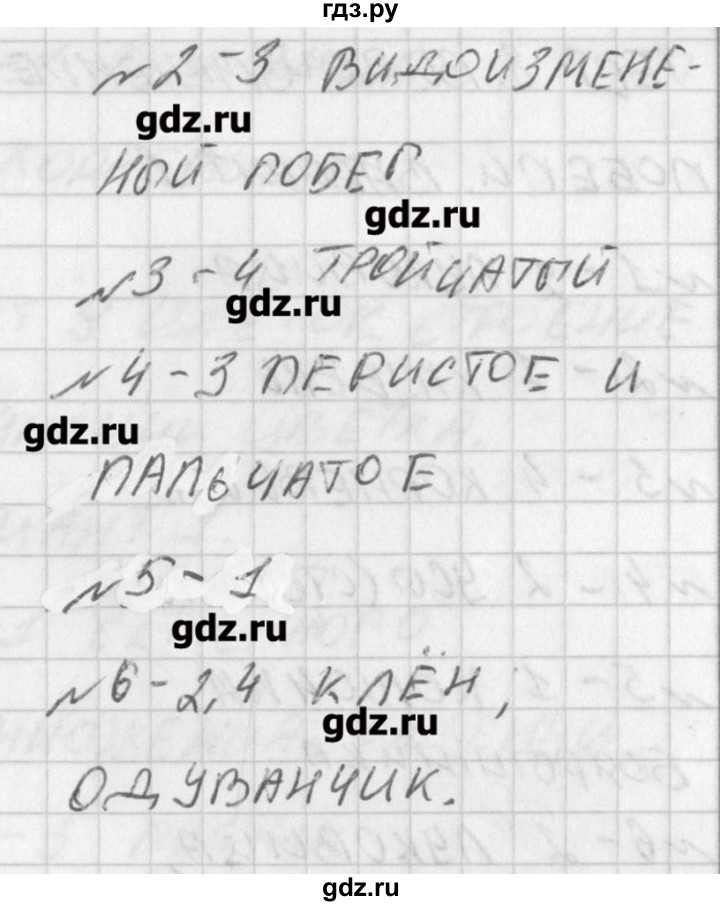 гдз.ру
№2-3 ВИДОИЗМЕНЕ-
gdz.ru
НЫЙ ПОБЕГ
gdz.ru
№3-4 ТРОЙЧАТЫЙ
gdz.ru
№4-3 ПЕРИСТОЕ И
gdz.ru
ПАЛЬЧАТОЕ
№5-1
gdz.ru
№6-2,4 КЛЁН,
gdz.ru
ОДУВАНЧИК.
gdz.ru